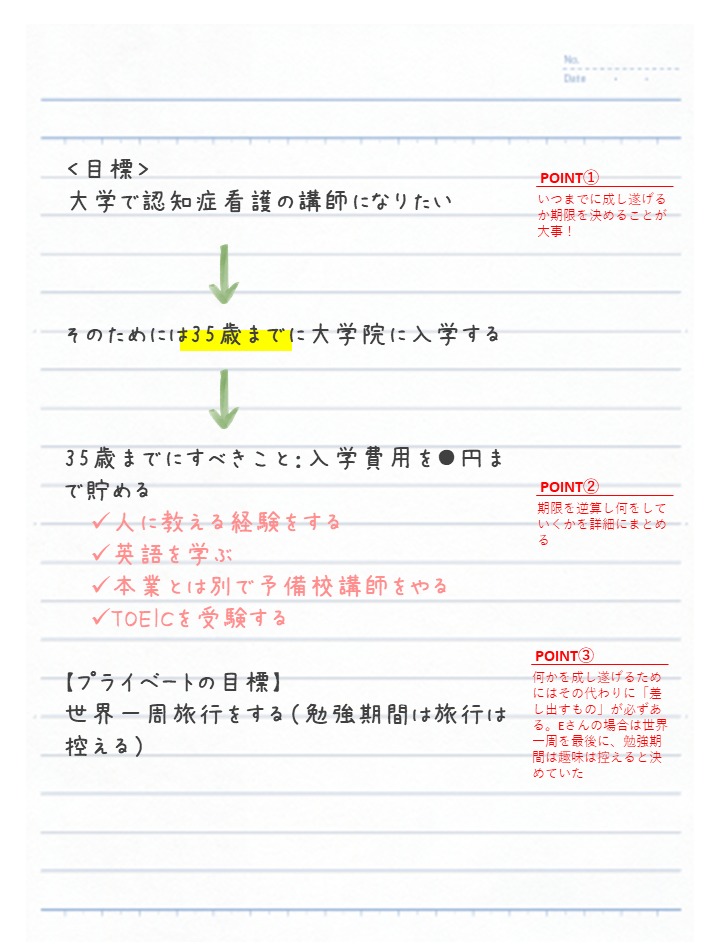 No.
Date
<目標>
大学で認知症看護の講師になりたい
POINT①
いつまでに成し遂げる
か期限を決めることが
大事！
そのためには35歳までに大学院に入学する
35歳までにすべきこと:入学費用を●円ま
で貯める
✓人に教える経験をする
✓英語を学ぶ
✓本業とは別で予備校講師をやる
✓TOEICを受験する
POINT②
期限を逆算し何をして
いくかを詳細にまとめ
る
【プライベートの目標】
世界一周旅行をする(勉強期間は旅行は
控える)
POINT③
何かを成し遂げるため
にはその代わりに「差
し出すもの」が必ずあ
る。Eさんの場合は世界
一周を最後に、勉強期
間は趣味は控えると決
めていた